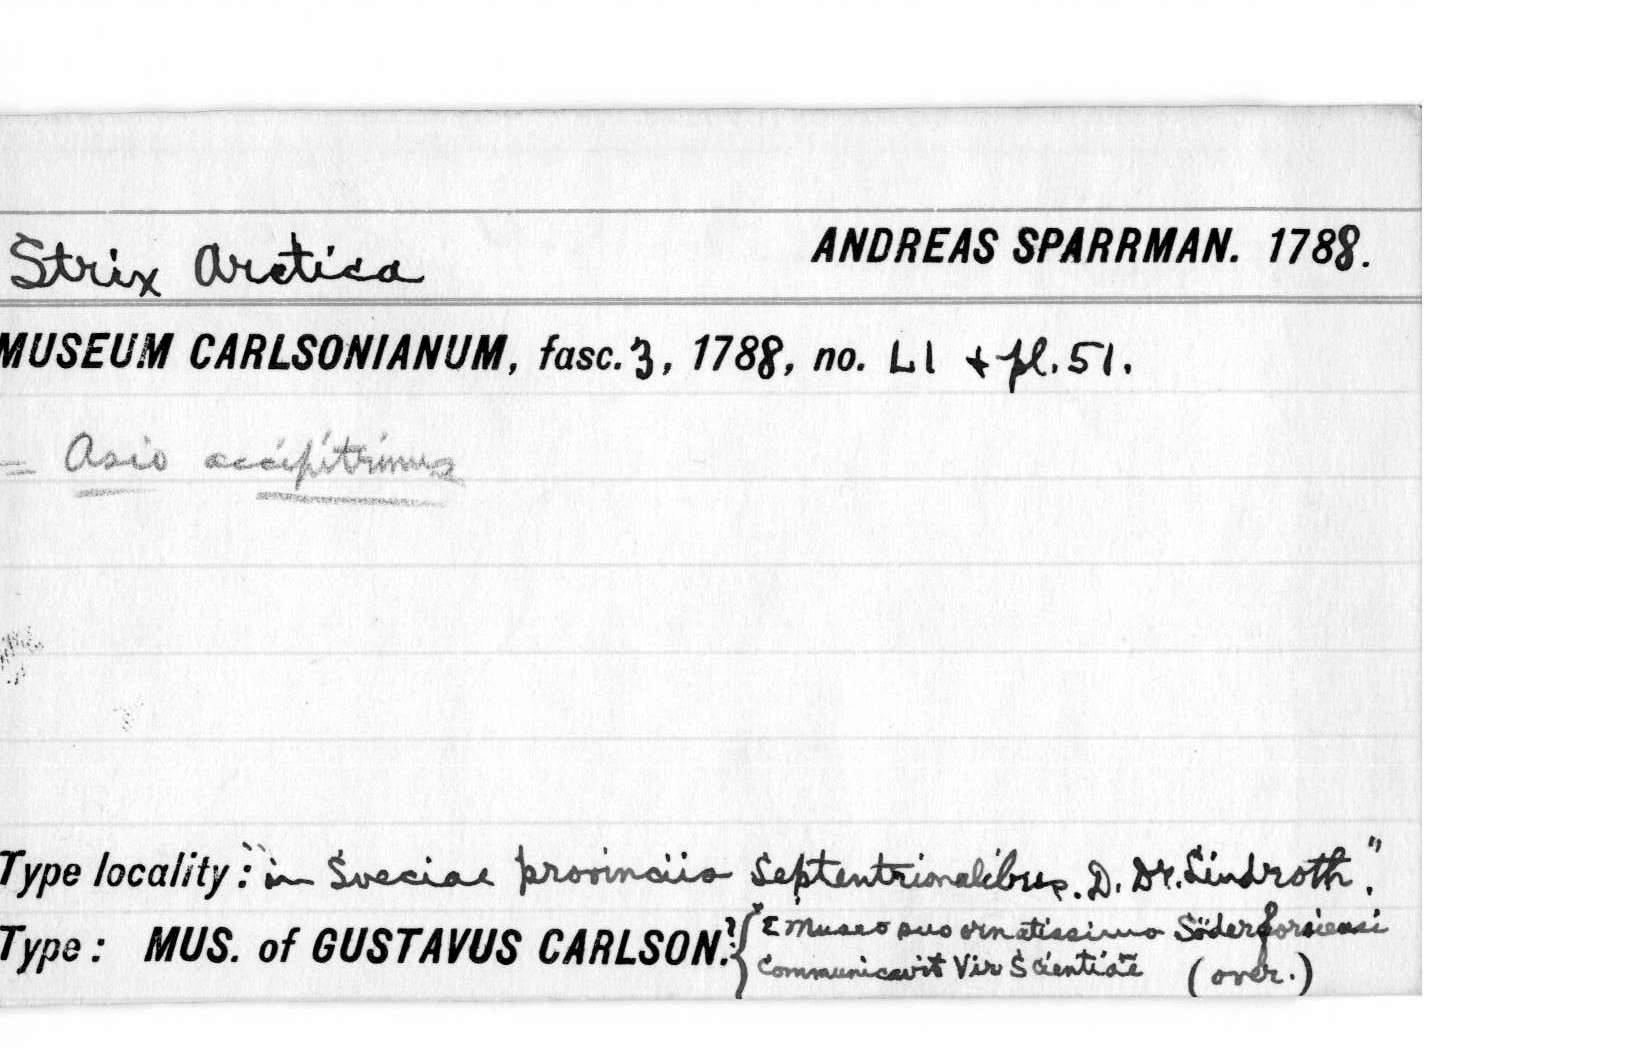 Strix Arctica ANDREAS SPARRMAN. 1788.
MUSEUM CARLSONIANUM, fasc. 3, 1788, no. LI + pl. 51.
= Asio accipitrinus
Type locality: "in Sveciae provinciis Septentrionalibus. D. Dr. Lindroth."
Type: MUS. of GUSTAVUS CARLSON.? { "E Museo suo ornatissimo Söderforsiensi
communicavit Vir Scientiae (over.)